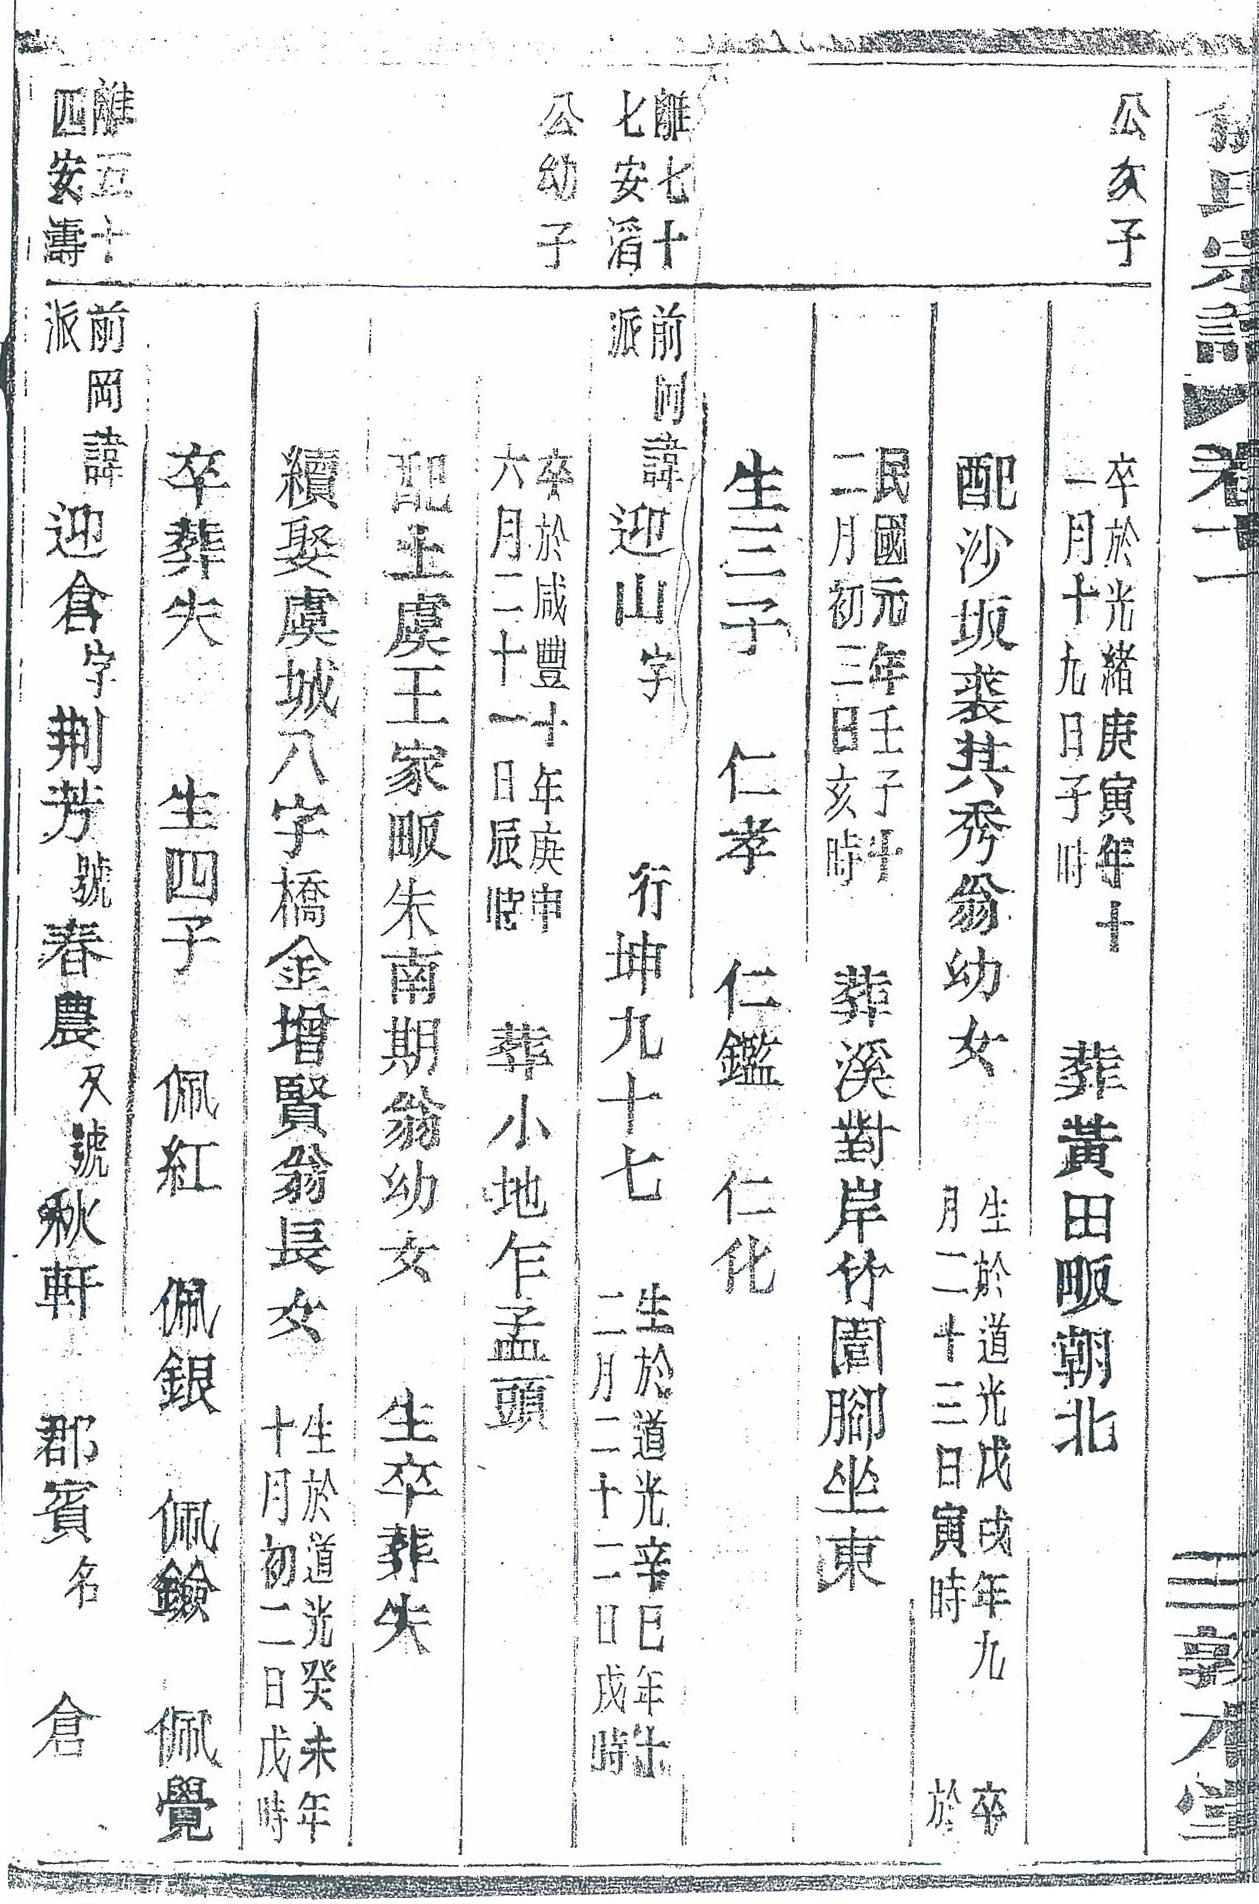 氏宗譜
卷二
三
敦本堂
公次子
卒於光緒庚寅年十
一月十九日子時
葬黃田畈朝北
配沙坂裘其秀翁幼女
生於道光戊戌年九
月二十三日寅時
卒
於
民國元年壬子十
二月初三日亥時
葬溪對岸竹園腳坐東
生三子 仁孝 仁鑑 仁化
離七十
七安滔
公幼子
前岡諱
派
迎山字 行坤九十七
生於道光辛巳年十
二月二十二日戌時
卒於咸豐十年庚申
六月二十一日辰時
葬小地乍孟頭
配上虞王家畈朱南期翁幼女 生卒葬失
續娶虞城八字橋金增賢翁長女
生於道光癸未年
十月初二日戌時
卒葬失 生四子 佩紅 佩銀 佩鐱 佩覺
離五十
四安壽
前岡諱
派
迎倉字荆芳號春農又號秋軒 郡賓名 倉